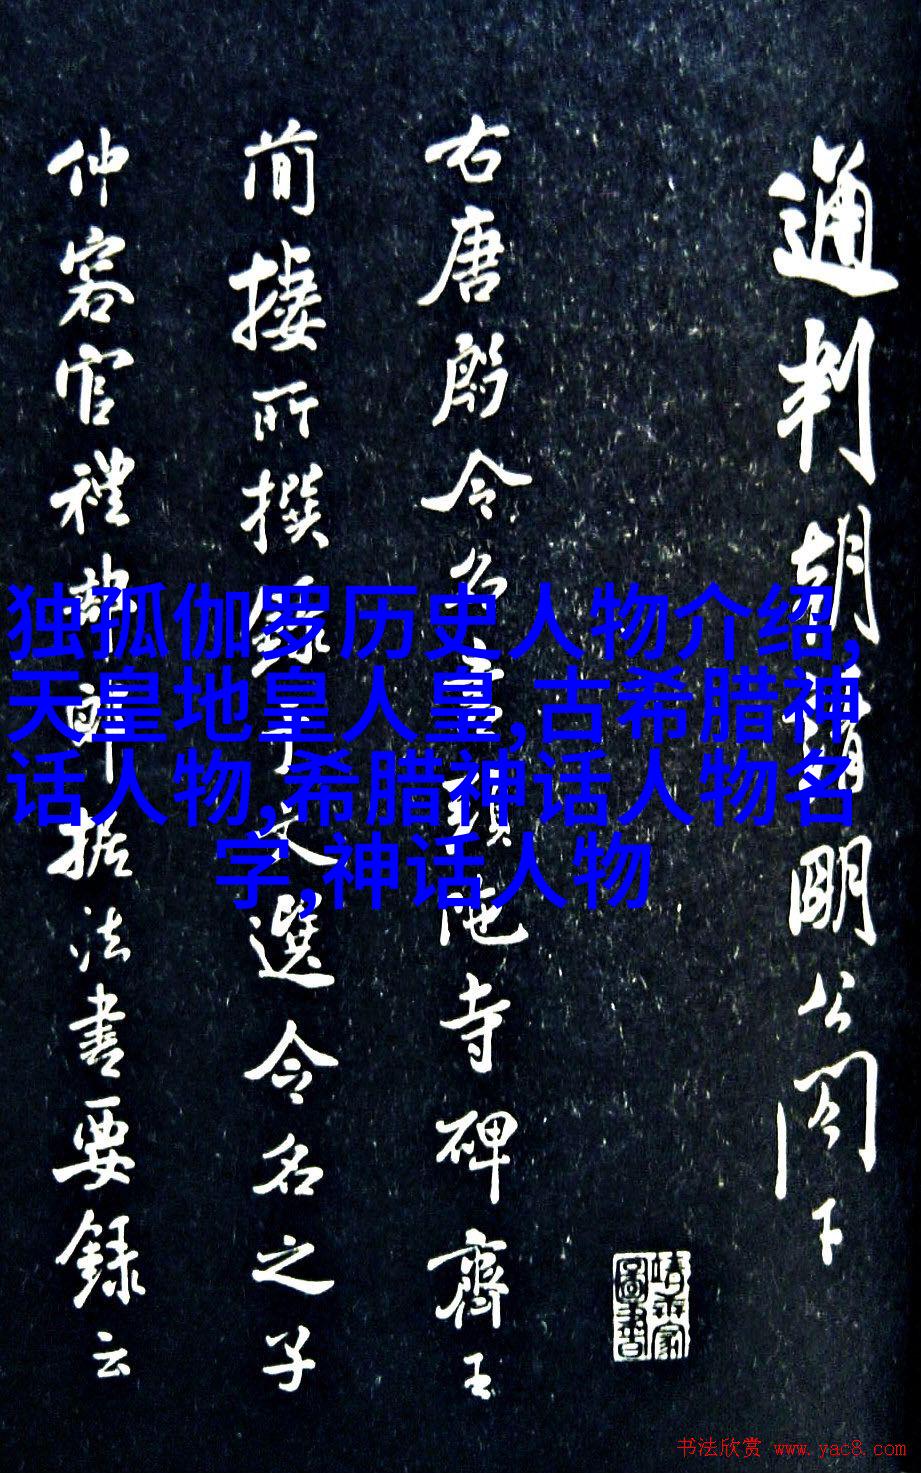 通判胡
明公閤下
右唐殷令名書
頭陁寺碑齊王
簡棲所撰錄于文選令名之子
仲容官禮部郎中據法書要録云
独孤伽罗历史人物介绍,
天皇地皇人皇,古希腊神
话人物,希腊神话人物名
字,神话人物
书法欣赏 www.yac8.com